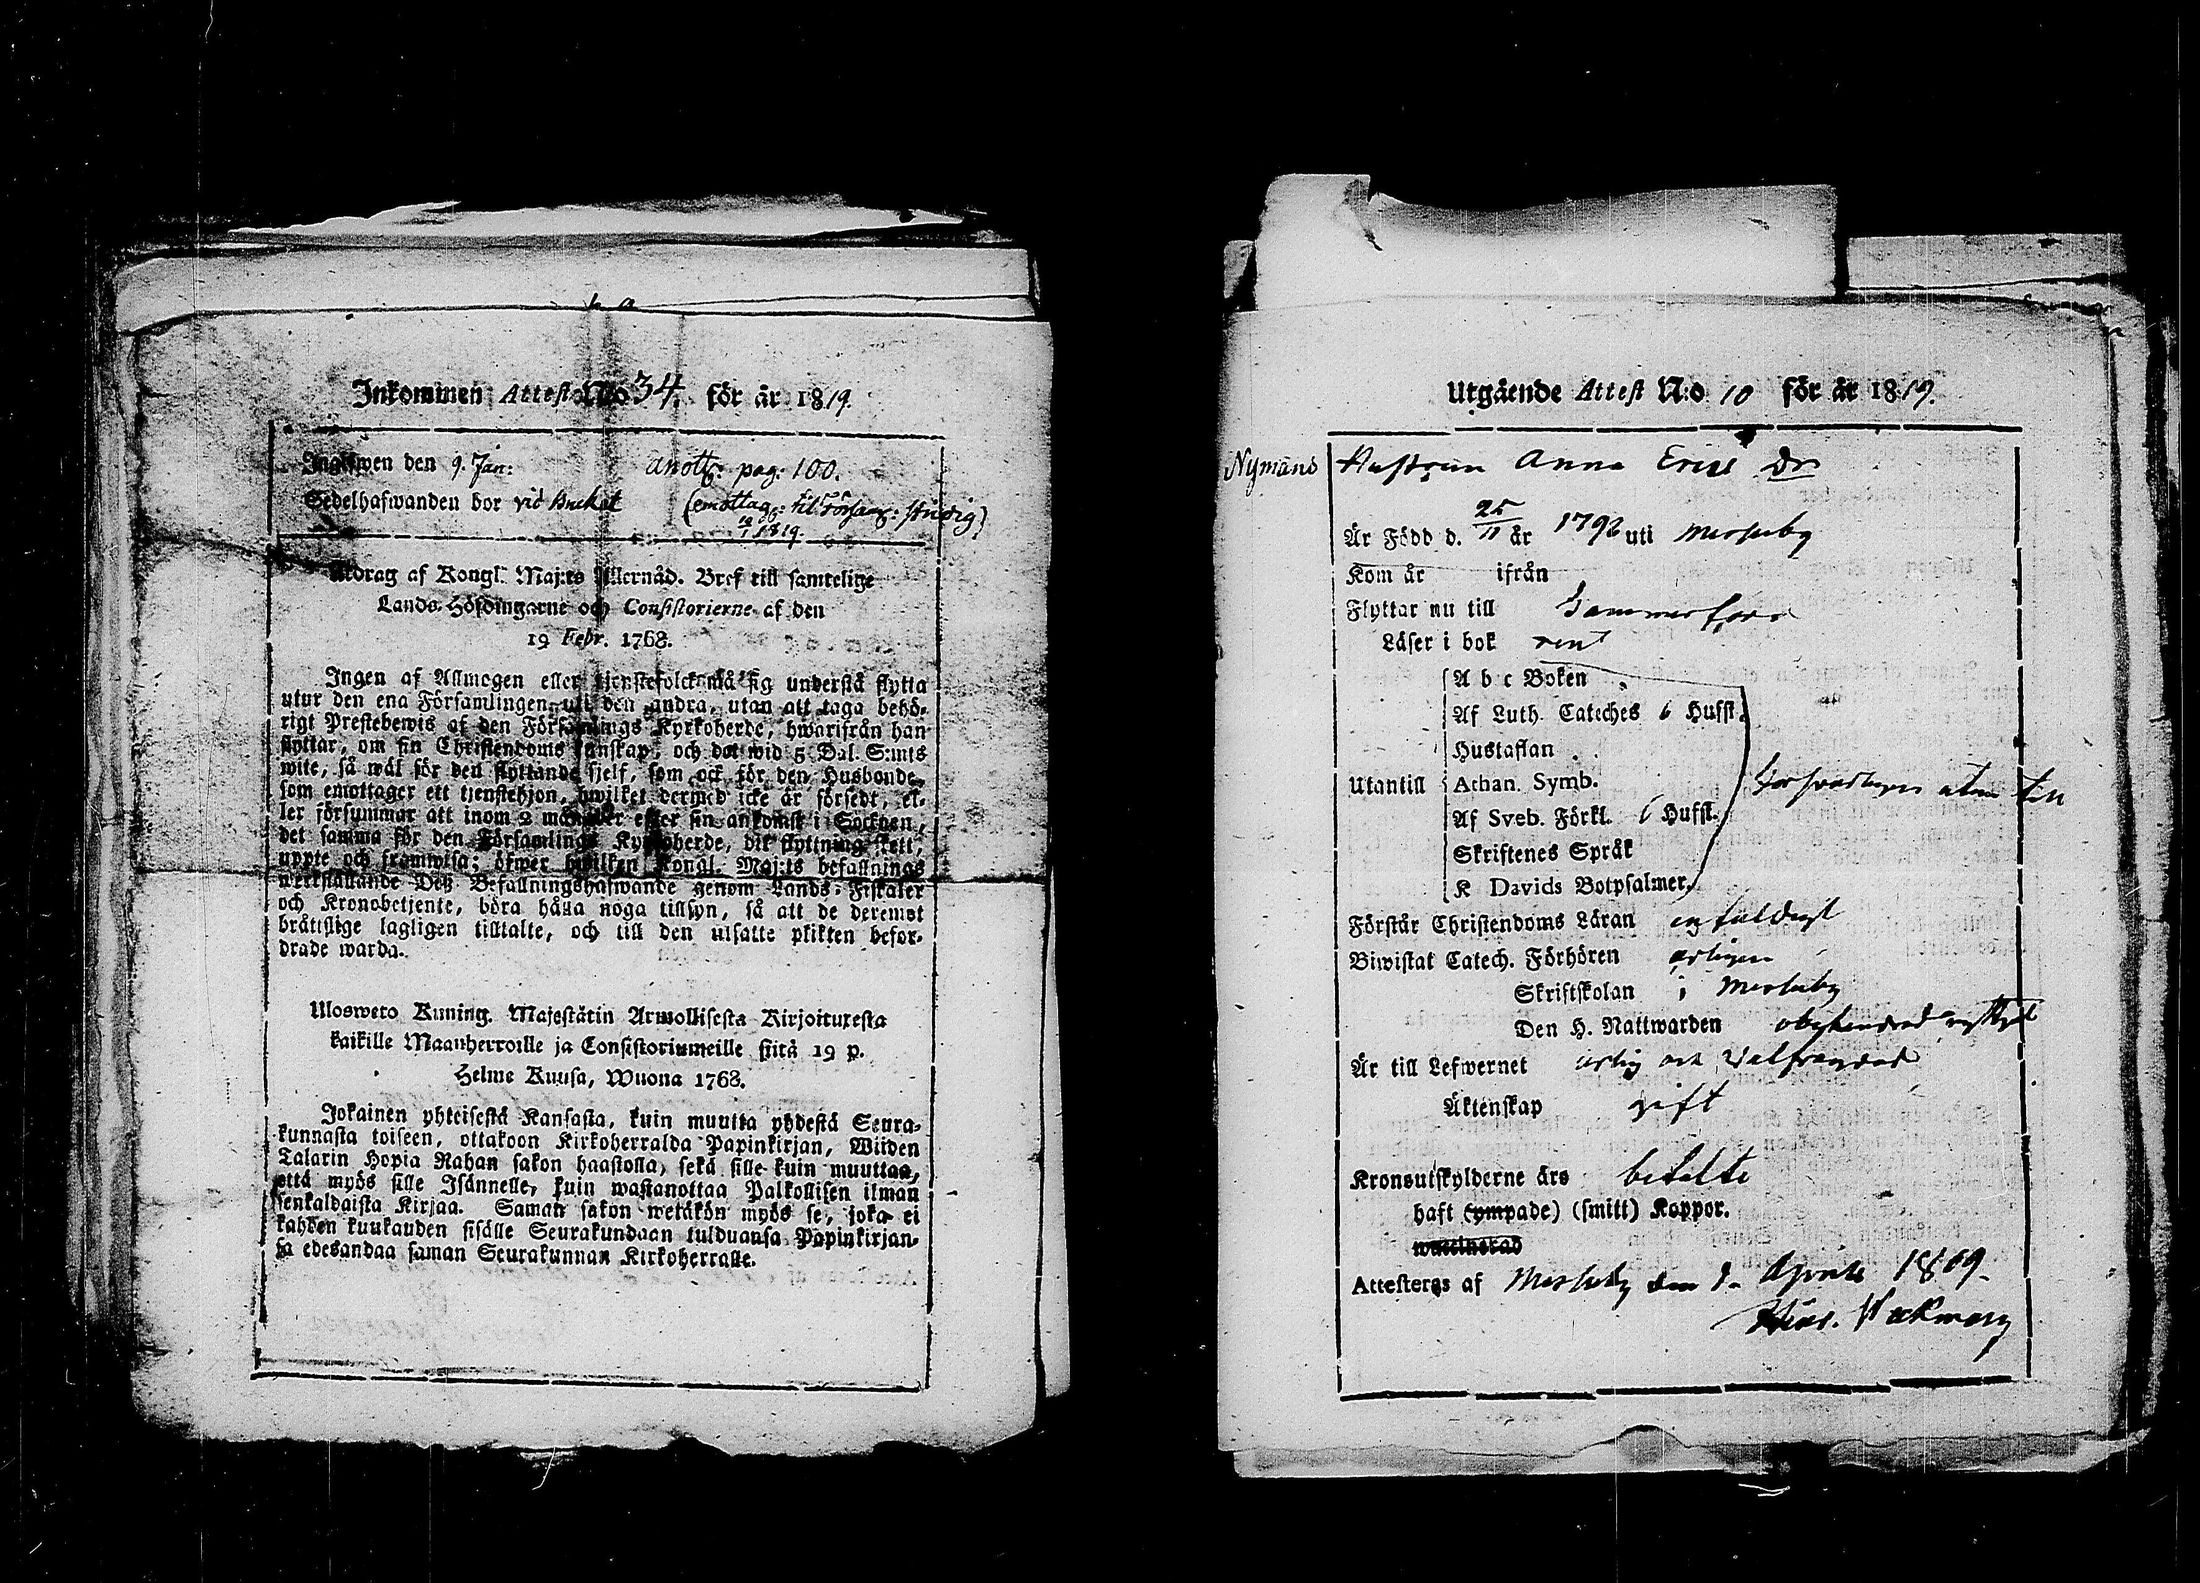 Inkommen Attest N:o 34. för år 1819.
Ingifwen den 9. Jan: anott: pag: 100.
Sedelhafwanden bor vid Bruket (emottag: til Församl: Studig)
1819.
Utdrag af Kongl. Maj:ts Allernåd. Bref till samtelige
Lands-Höfdingarne och Consistorierne af den
19 Febr. 1768.
Ingen af Allmogen eller tjenstefolck må sig understå flytta
utur den ena Församlingen uti den andra, utan att taga behö-
rigt Prestebewis af den Församlings Kyrkoherde, hwarifrån han
flyttar, om sin Christendoms kunskap, och det wid 5 Dal. S:mts
wite, så wäl för den flyttande sjelf, som ock för den Husbonde,
som emottager ett tjenstehjon, hwilket dermed icke är försedt, el-
ler försummar att inom 2 månader efter sin ankomst i Socknen,
det samma för den Församlings Kyrkoherde, dit flyttning skett,
uppte och framwisa; öfwer hwilken Kongl. Maj:ts befallnings
werkställande Deß Befallningshafwande genom Lands-Fiskaler
och Kronobetjente, böra hålla noga tillsyn, så att de deremot
bråttslige lagligen tilltalte, och till den utsatte plikten befor-
drade warda.
Ulosweto Kuning. Majestätin Armollisesta Kirjoituresta
kaikille Maanherroille ja Consistoriumeille siitä 19 p.
Helme Kuusa, Wuona 1768.
Jokainen yhteisestä Kansasta, kuin muutta yhdestä Seura-
kunnasta toiseen, ottakoon Kirkoherralda Papinkirjan, Wiiden
Talarin Hopia Rahan sakon haastolla, sekä sille kuin muuttaa,
että myös sille Isännelle, kuin wastanottaa Palkollisen ilman
senkaldaista Kirjaa. Saman sakon wetäkön myös se, joka ei
kahden kuukauden sisälle Seurakundaan tulduansa Papinkirjan-
sa edesandaa saman Seurakunnan Kirkoherralle.
Utgående Attest N:o 10 för år 1819.
Nymans Hustrun Anna Erics Dr
Är Född d. 25/11 år 1792 uti
Kom år ifrån
Flyttar nu till
Läser i bok rent
A b c Boken
Af Luth. Cateches 6 Hufst.
Hustaflan
Utantill Athan. Symb. utan till
Af Sveb. Förkl. 6 Hufst.
Skriftenes Språk
K Davids Botpsalmer.
Förstår Christendoms Läran enfaldigt
Biwistat Catech. Förhören årligen
Skriftskolan i
Den H. Nattwarden
Är till Lefwernet ärlig och Välfrejdad
Äktenskap gift
Kronoutskylderne års betalte
haft (ympade) (smitt) Koppor.
waccinerad
Attesteras af den 9. Aprill 1819.